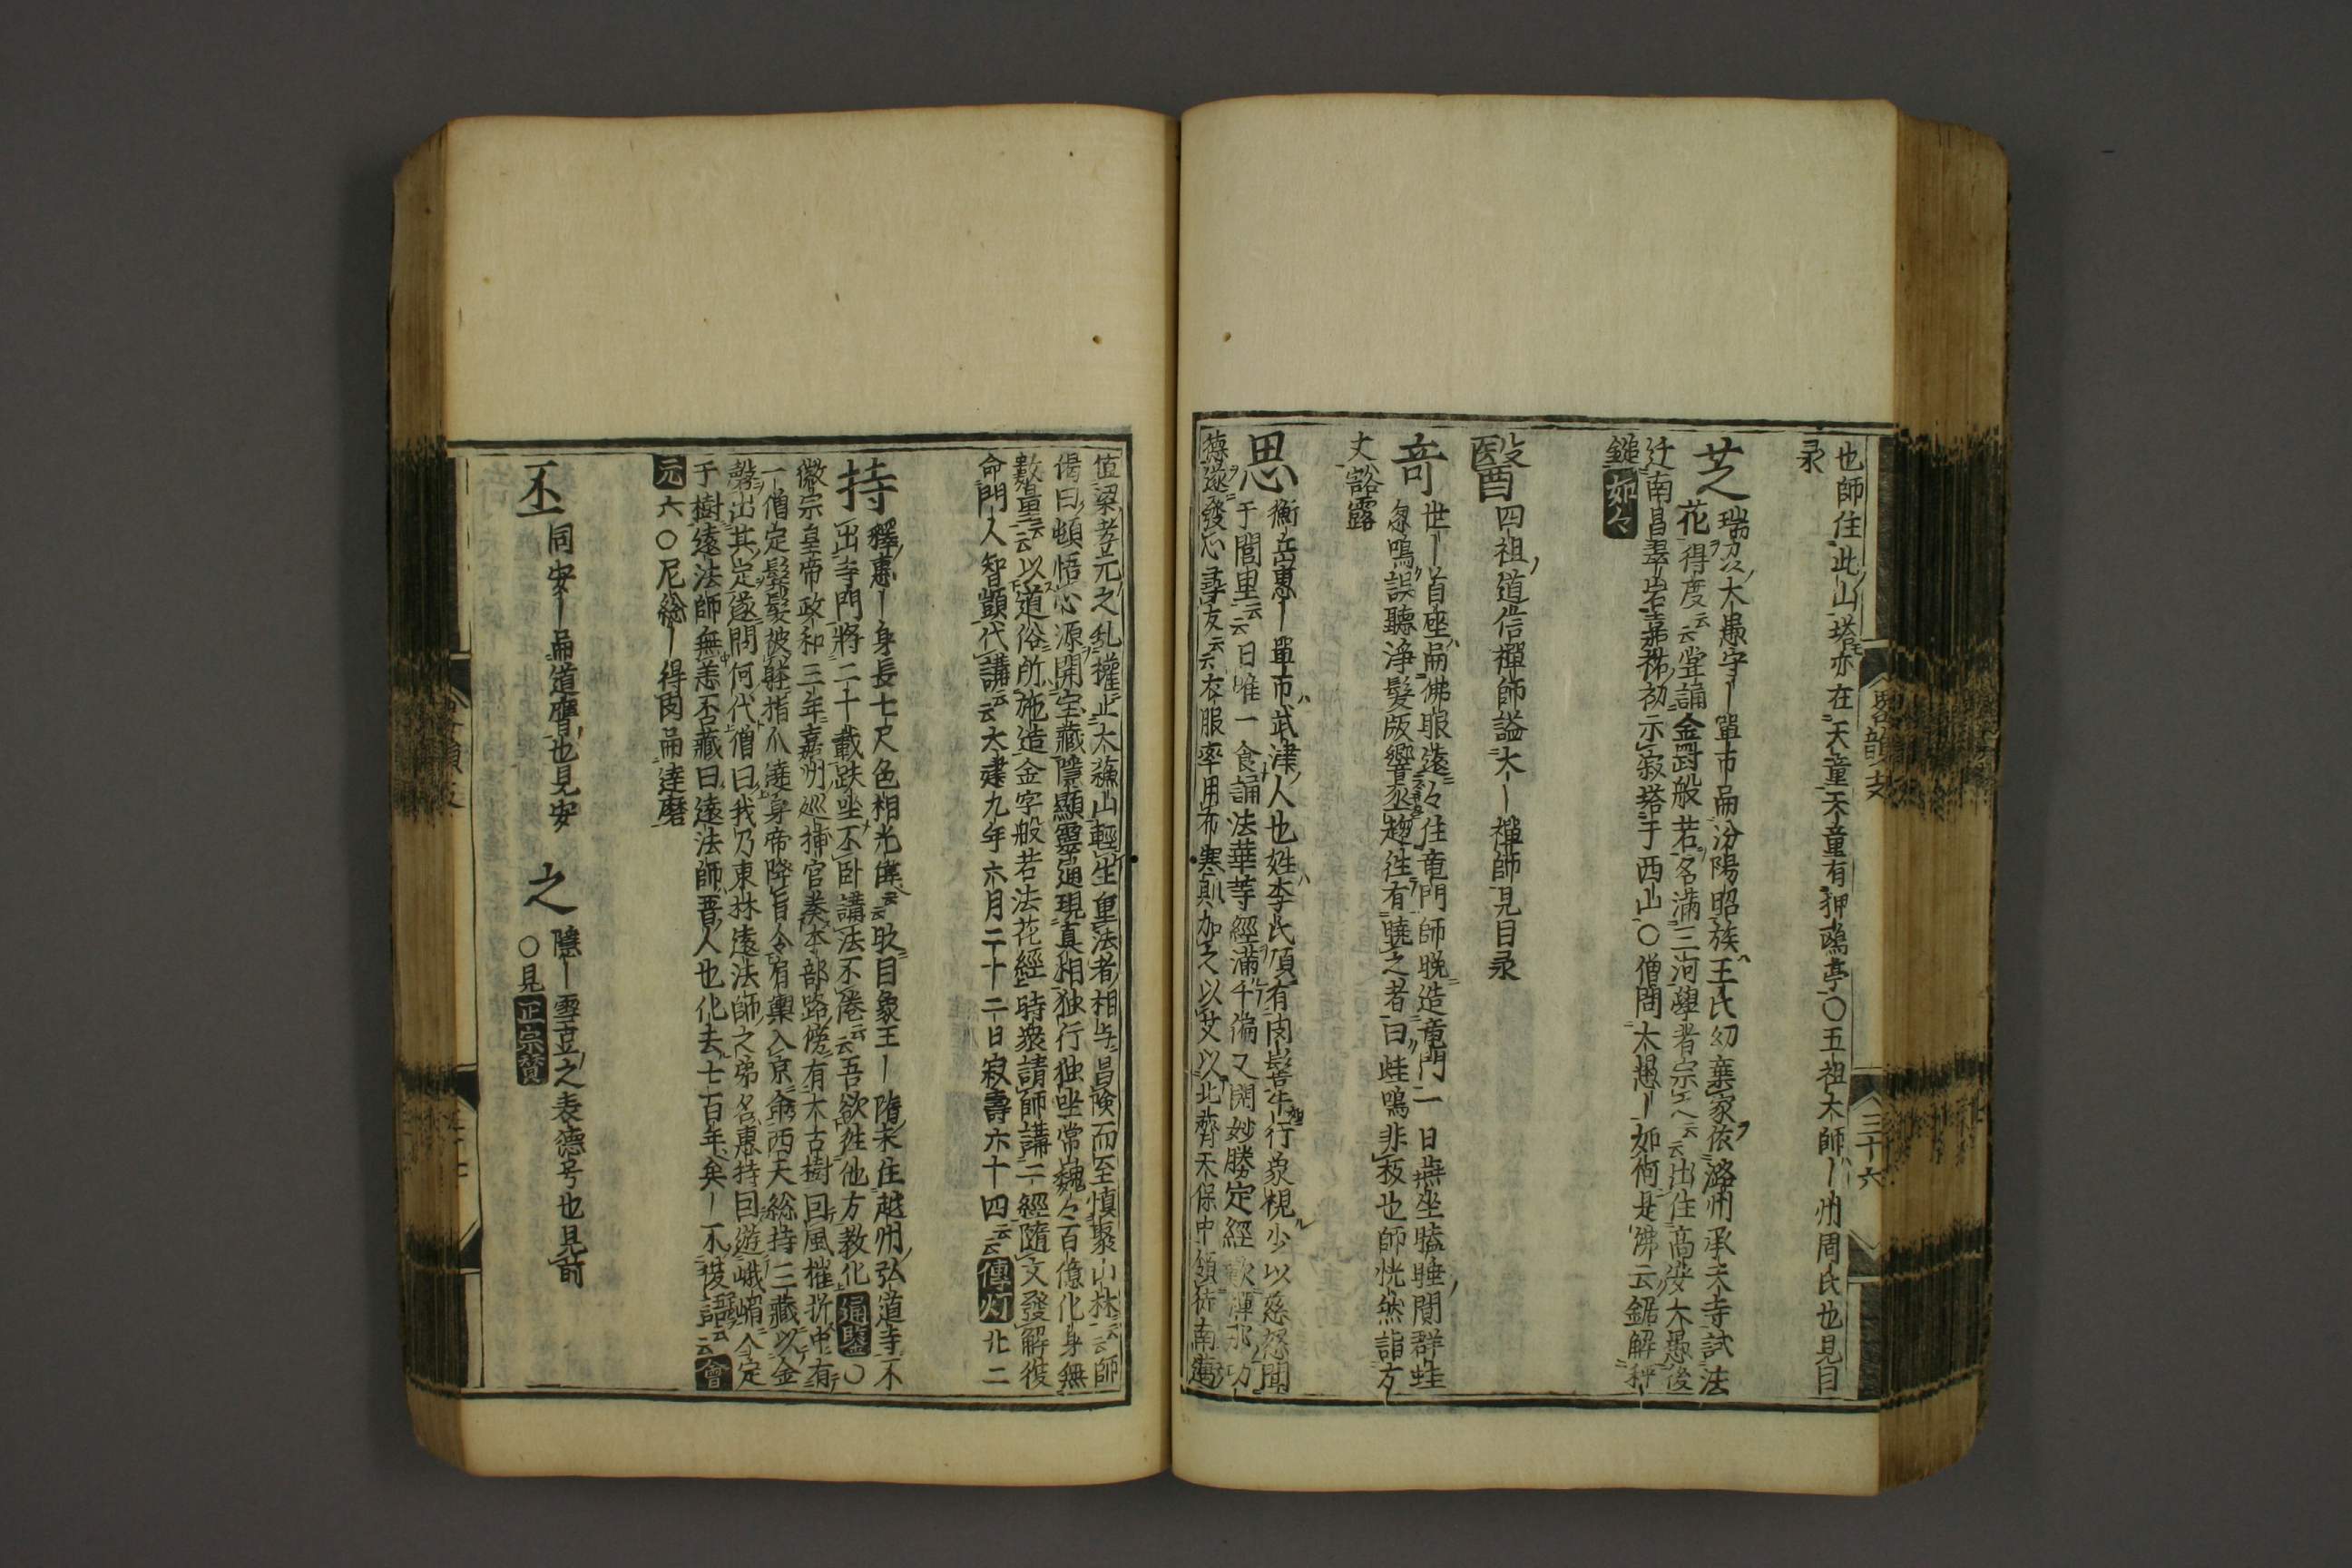 也師住此山塔亦在天童天童有狎鷗亭〇五祖大師ー州周氏也見目
录
芝
瑞州大愚守ー單市嗣汾陽昭族王氏幼棄家依潞州承天寺試法
花得度云云堂誦金罸般若名滿三河學者宗之云云出住高安大愚後
迁南昌翠岩嘉祐初示寂塔于西山〇僧問大愚ー如何是佛云鋸解秤
鎚如々
醫
四祖道信禪師謚大ー禪師見目录
奇
世ー首座嗣佛眼遠々住竜門師晩造竜門一日燕坐瞌睡間群蛙
忽鳴誤聽淨髮版響亟趨往有曉之者曰蛙鳴非板也師恍然詣方
丈豁露
思
衡岳惠ー單市武津人也姓李氏頂有肉髻牛行象視少以慈恕聞
于閭里云云日唯一食誦法華等經滿千徧又閱妙勝定經歎禪那功
德遂發心尋友云云衣服率用布寒則加之以艾以北齊天保中領徒南邁
略韻支
三十六
值梁孝元之乱權止大蘓山輕生重法者相与昌険而至慎聚山林云云師
偈曰頓悟心源開宝藏隱顯靈通現真相独行独坐常巍々百億化身無
數量云云以道俗所施造金字般若法花經時衆請師講二經隨文發解後
命門人智顗代講云云太建九年六月二十二日寂壽六十四云云傳灯北二
持
釋惠ー身長七尺色相光偉云云眼目象王ー隋末住越州弘道寺不
出寺門將二十載跌坐不卧講法不倦云云吾欲往他方教化通鑒〇
徽宗皇帝政和三年嘉州巡捕官奏本部路傍有大古樹回風摧折中有
一僧定髭髮被躰指爪遶身帝降旨令肩輿入京命西天総持三藏以金
磬出其定遂問何代僧曰我乃東林遠法師之弟名惠持因遊峨嵋入定
于樹遠法師無恙否藏曰遠法師晋人也化去七百年矣ー不復語云云會
元六〇尼総ー得肉嗣達磨
丕
同安ー嗣道膺也見安
之
隱ー雪豆之表德号也見前
〇見正宗贊